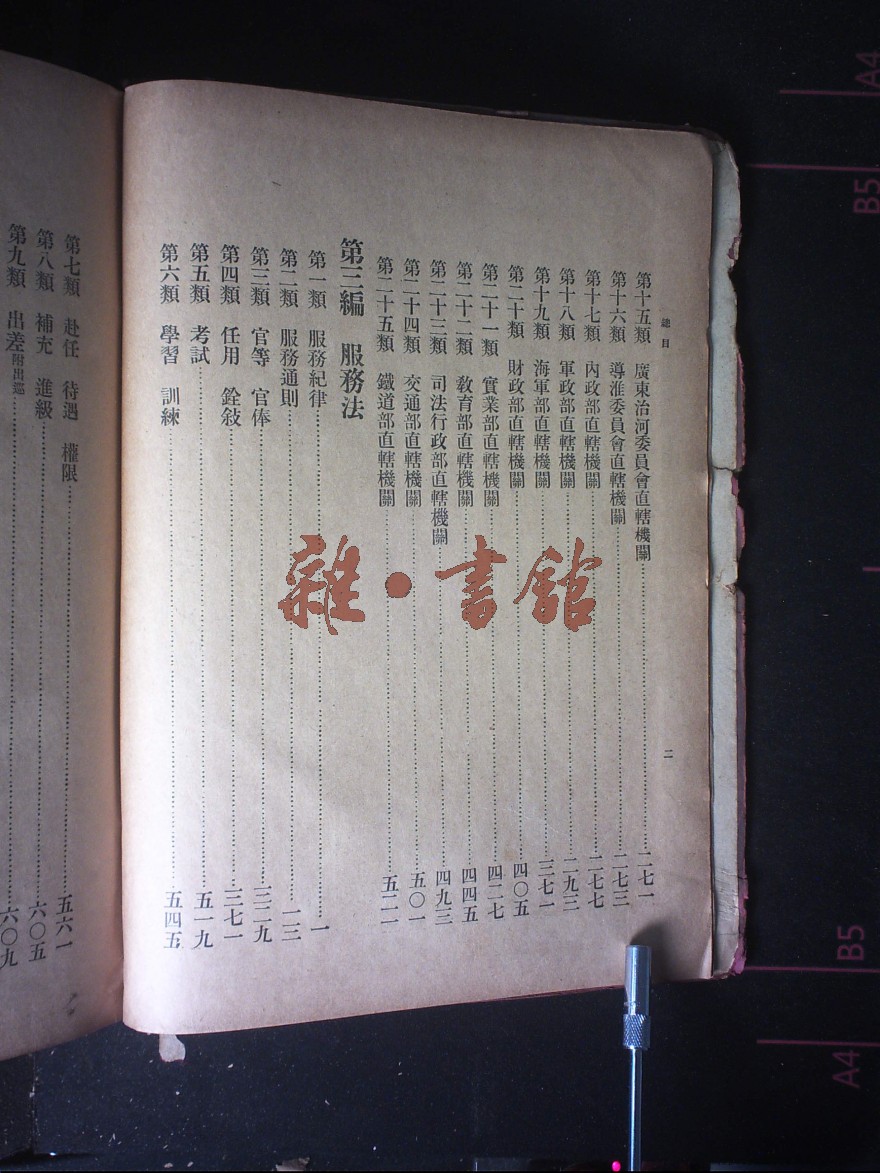 總目
二
第十五類 廣東治河委員會直轄機關……二七一
第十六類 導淮委員會直轄機關……二七三
第十七類 內政部直轄機關……二七七
第十八類 軍政部直轄機關……二九三
第十九類 海軍部直轄機關……三七一
第二十類 財政部直轄機關……四〇五
第二十一類 實業部直轄機關……四二七
第二十二類 敎育部直轄機關……四四五
第二十三類 司法行政部直轄機關……四九三
第二十四類 交通部直轄機關……五〇一
第二十五類 鐵道部直轄機關……五二一
第三編 服務法
第一類 服務紀律……一
第二類 服務通則……一三
第三類 官等 官俸……三二九
第四類 任用 銓敍……三七一
第五類 考試……五一九
第六類 學習 訓練……五四五
第七類 赴任 待遇 權限……五六一
第八類 補充 進級……六〇五
第九類 出差附出巡……六〇九
雜·書館
A4
B5
B5
A4